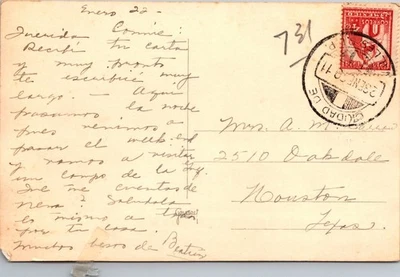 Enero 22-
Querida Connie:
Recibí tu carta
y muy pronto
te escribiré muy
largo. - Aquí
pasamos la noche
pues venimos a
pasar el week-end
y vamos a visitar
un campo de la
Que me cuentas de
nena? Salúdala
lo mismo a
por tu casa.
Muchos besos de Beatriz
731
CIUDAD DE
Mrs. A. M.
2510 Oakdale
Houston
Texas.